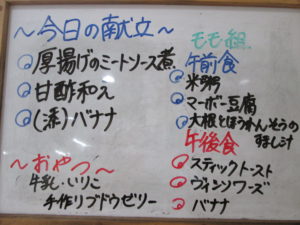 ～今日の献立～
厚揚げのミートソース煮
甘酢和え
(添)バナナ
～おやつ～
牛乳・いりこ
手作りブドウゼリー
モモ組
午前食
米粥
マーボー豆腐
大根とほうれんそうの
すまし汁
午後食
スティックトースト
ウィンナーソテー
バナナ